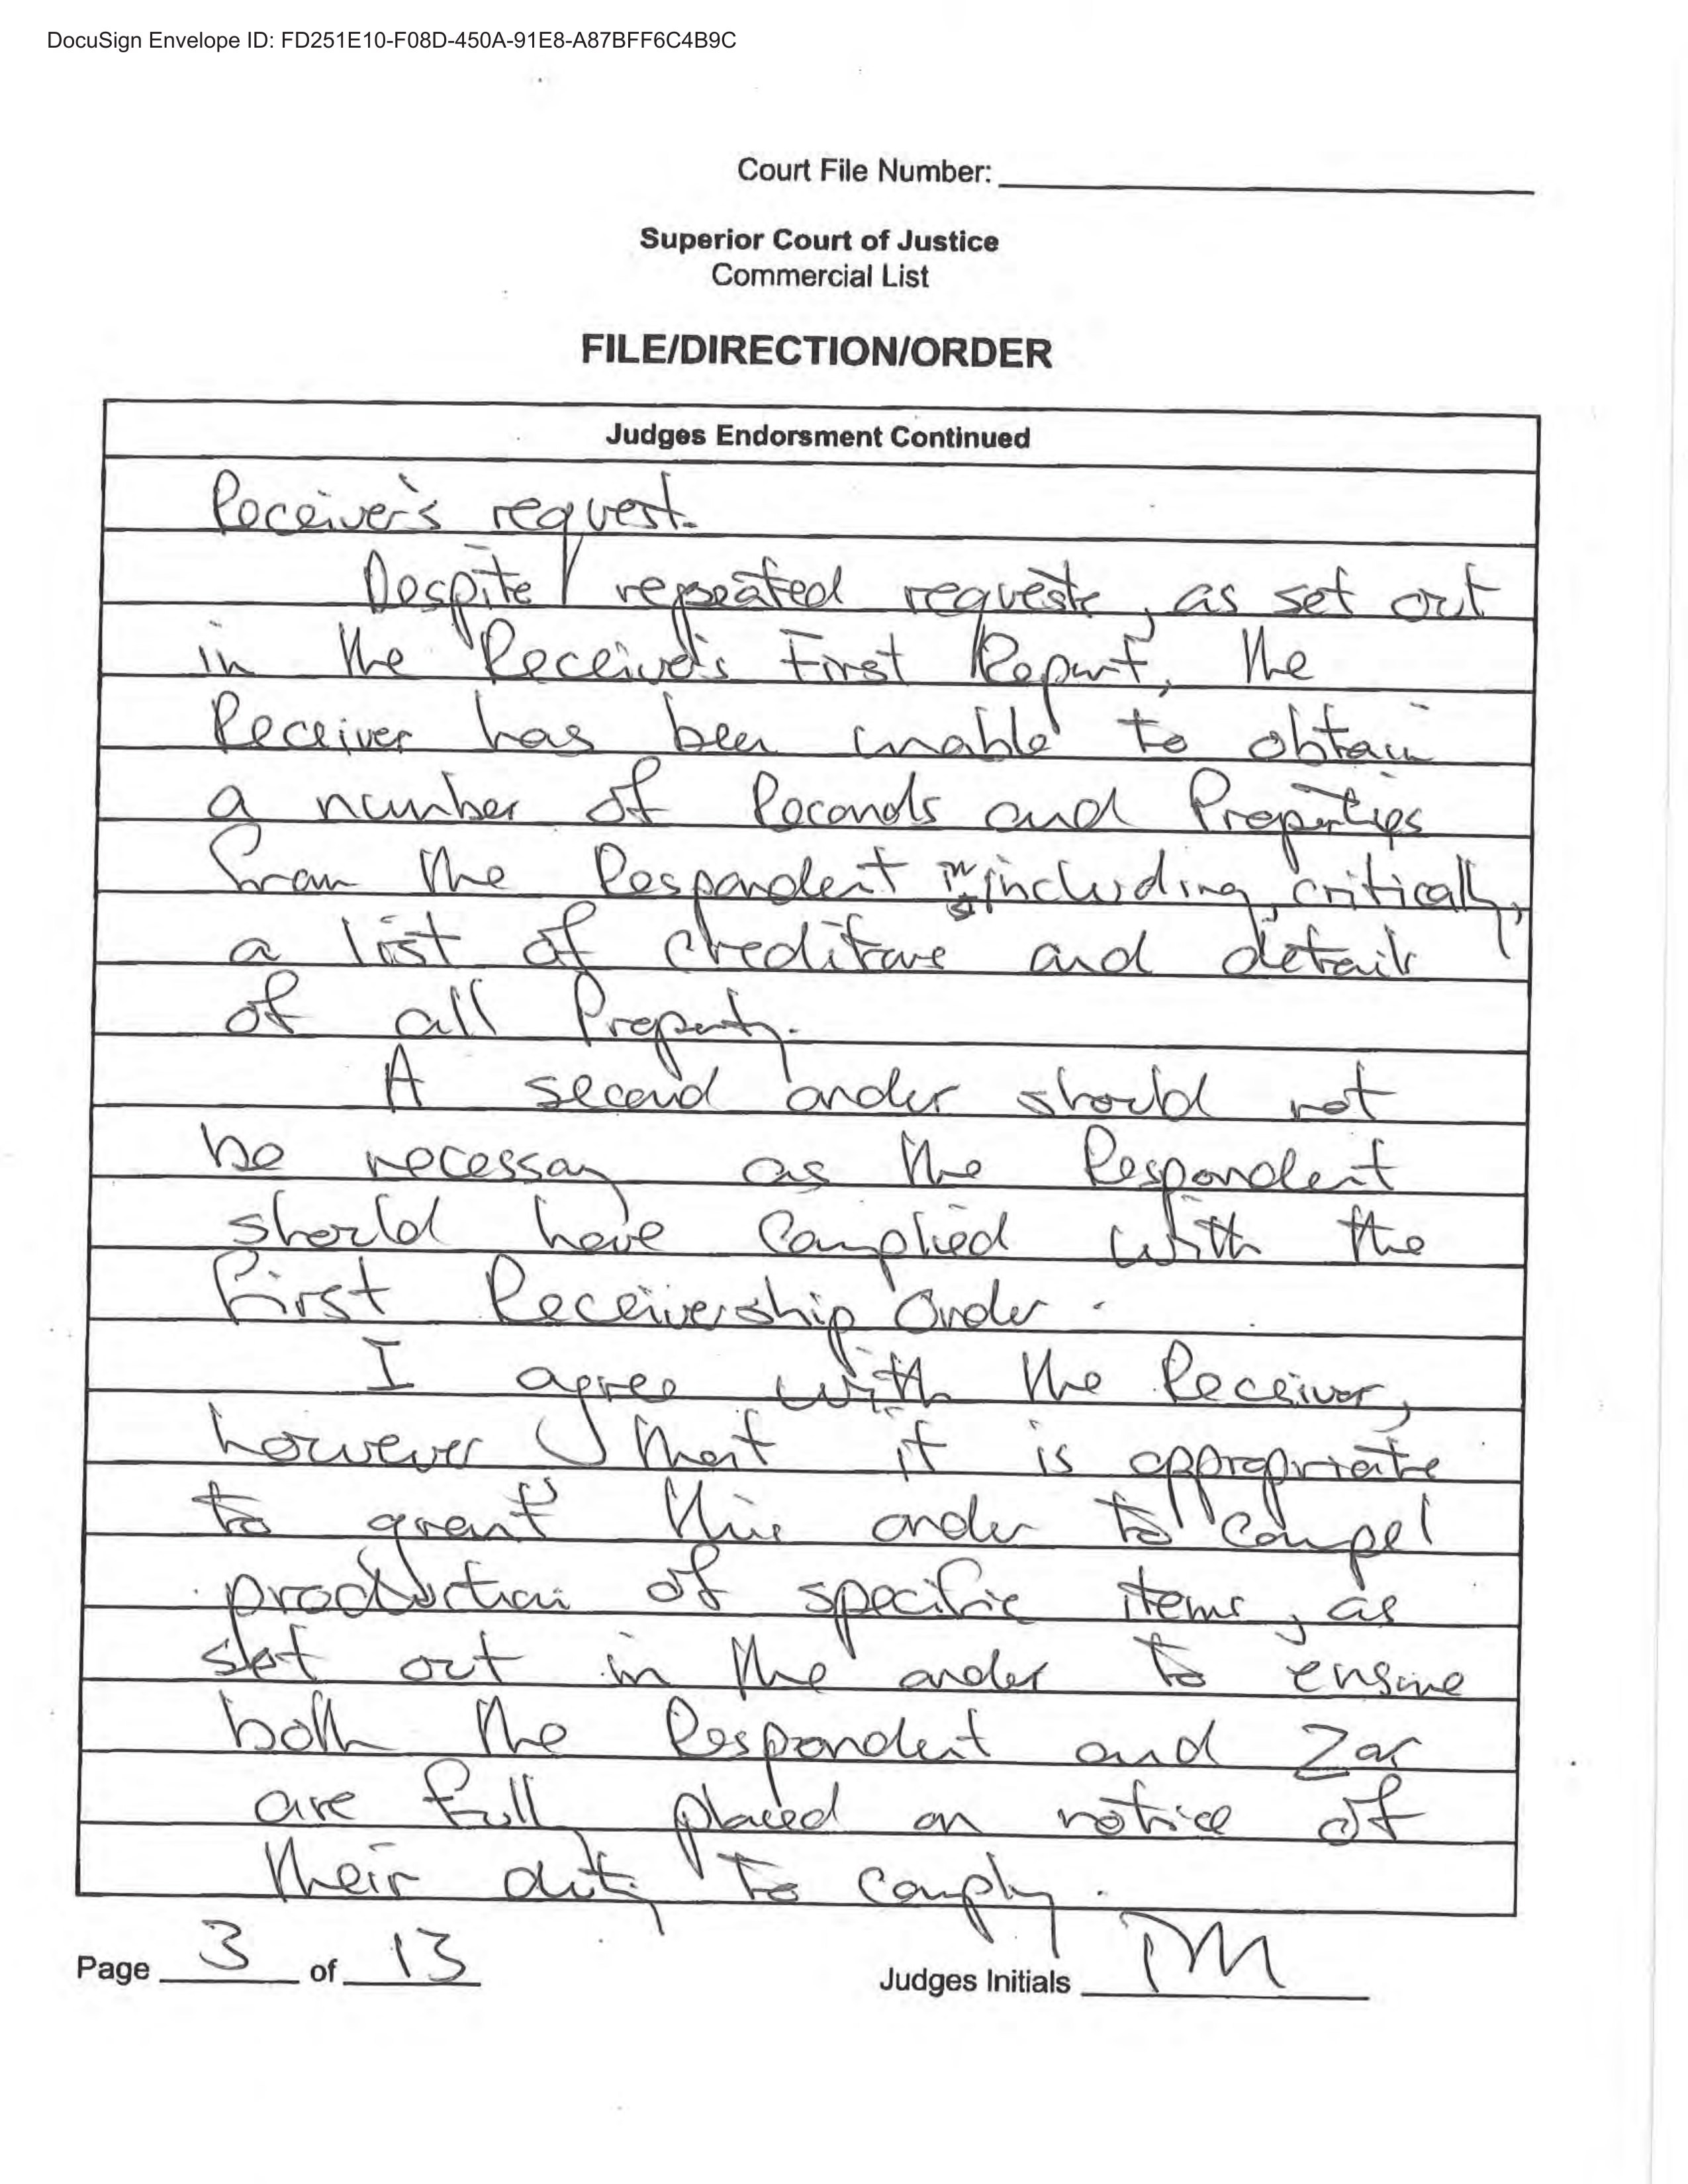 DocuSign Envelope ID: FD251E10-F08D-450A-91E8-A87BFF6C4B9C
Court File Number:
Superior Court of Justice
Commercial List
FILE/DIRECTION/ORDER
Judges Endorsment Continued
Receiver's request.
Despite repeated requests, as set out
in the Receiver's First Report, the
Receiver has been unable to obtain
a number of Records and Properties
from the Respondent including, critically,
a list of creditors and details
of all Property.
A second order should not
be necessary as the Respondent
should have complied with the
first Receivership Order.
I agree with the Receiver,
however, that it is appropriate
to grant this order to compel
production of specific items, as
set out in the order to ensure
both the Respondent and Zar
are fully placed on notice of
their duty to comply.
Page 3 of 13
Judges Initials PM